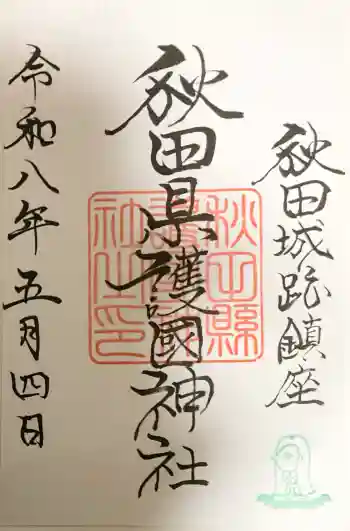 秋田城跡鎮座
秋田県護國神社
秋田縣護國神社之印
令和八年五月四日